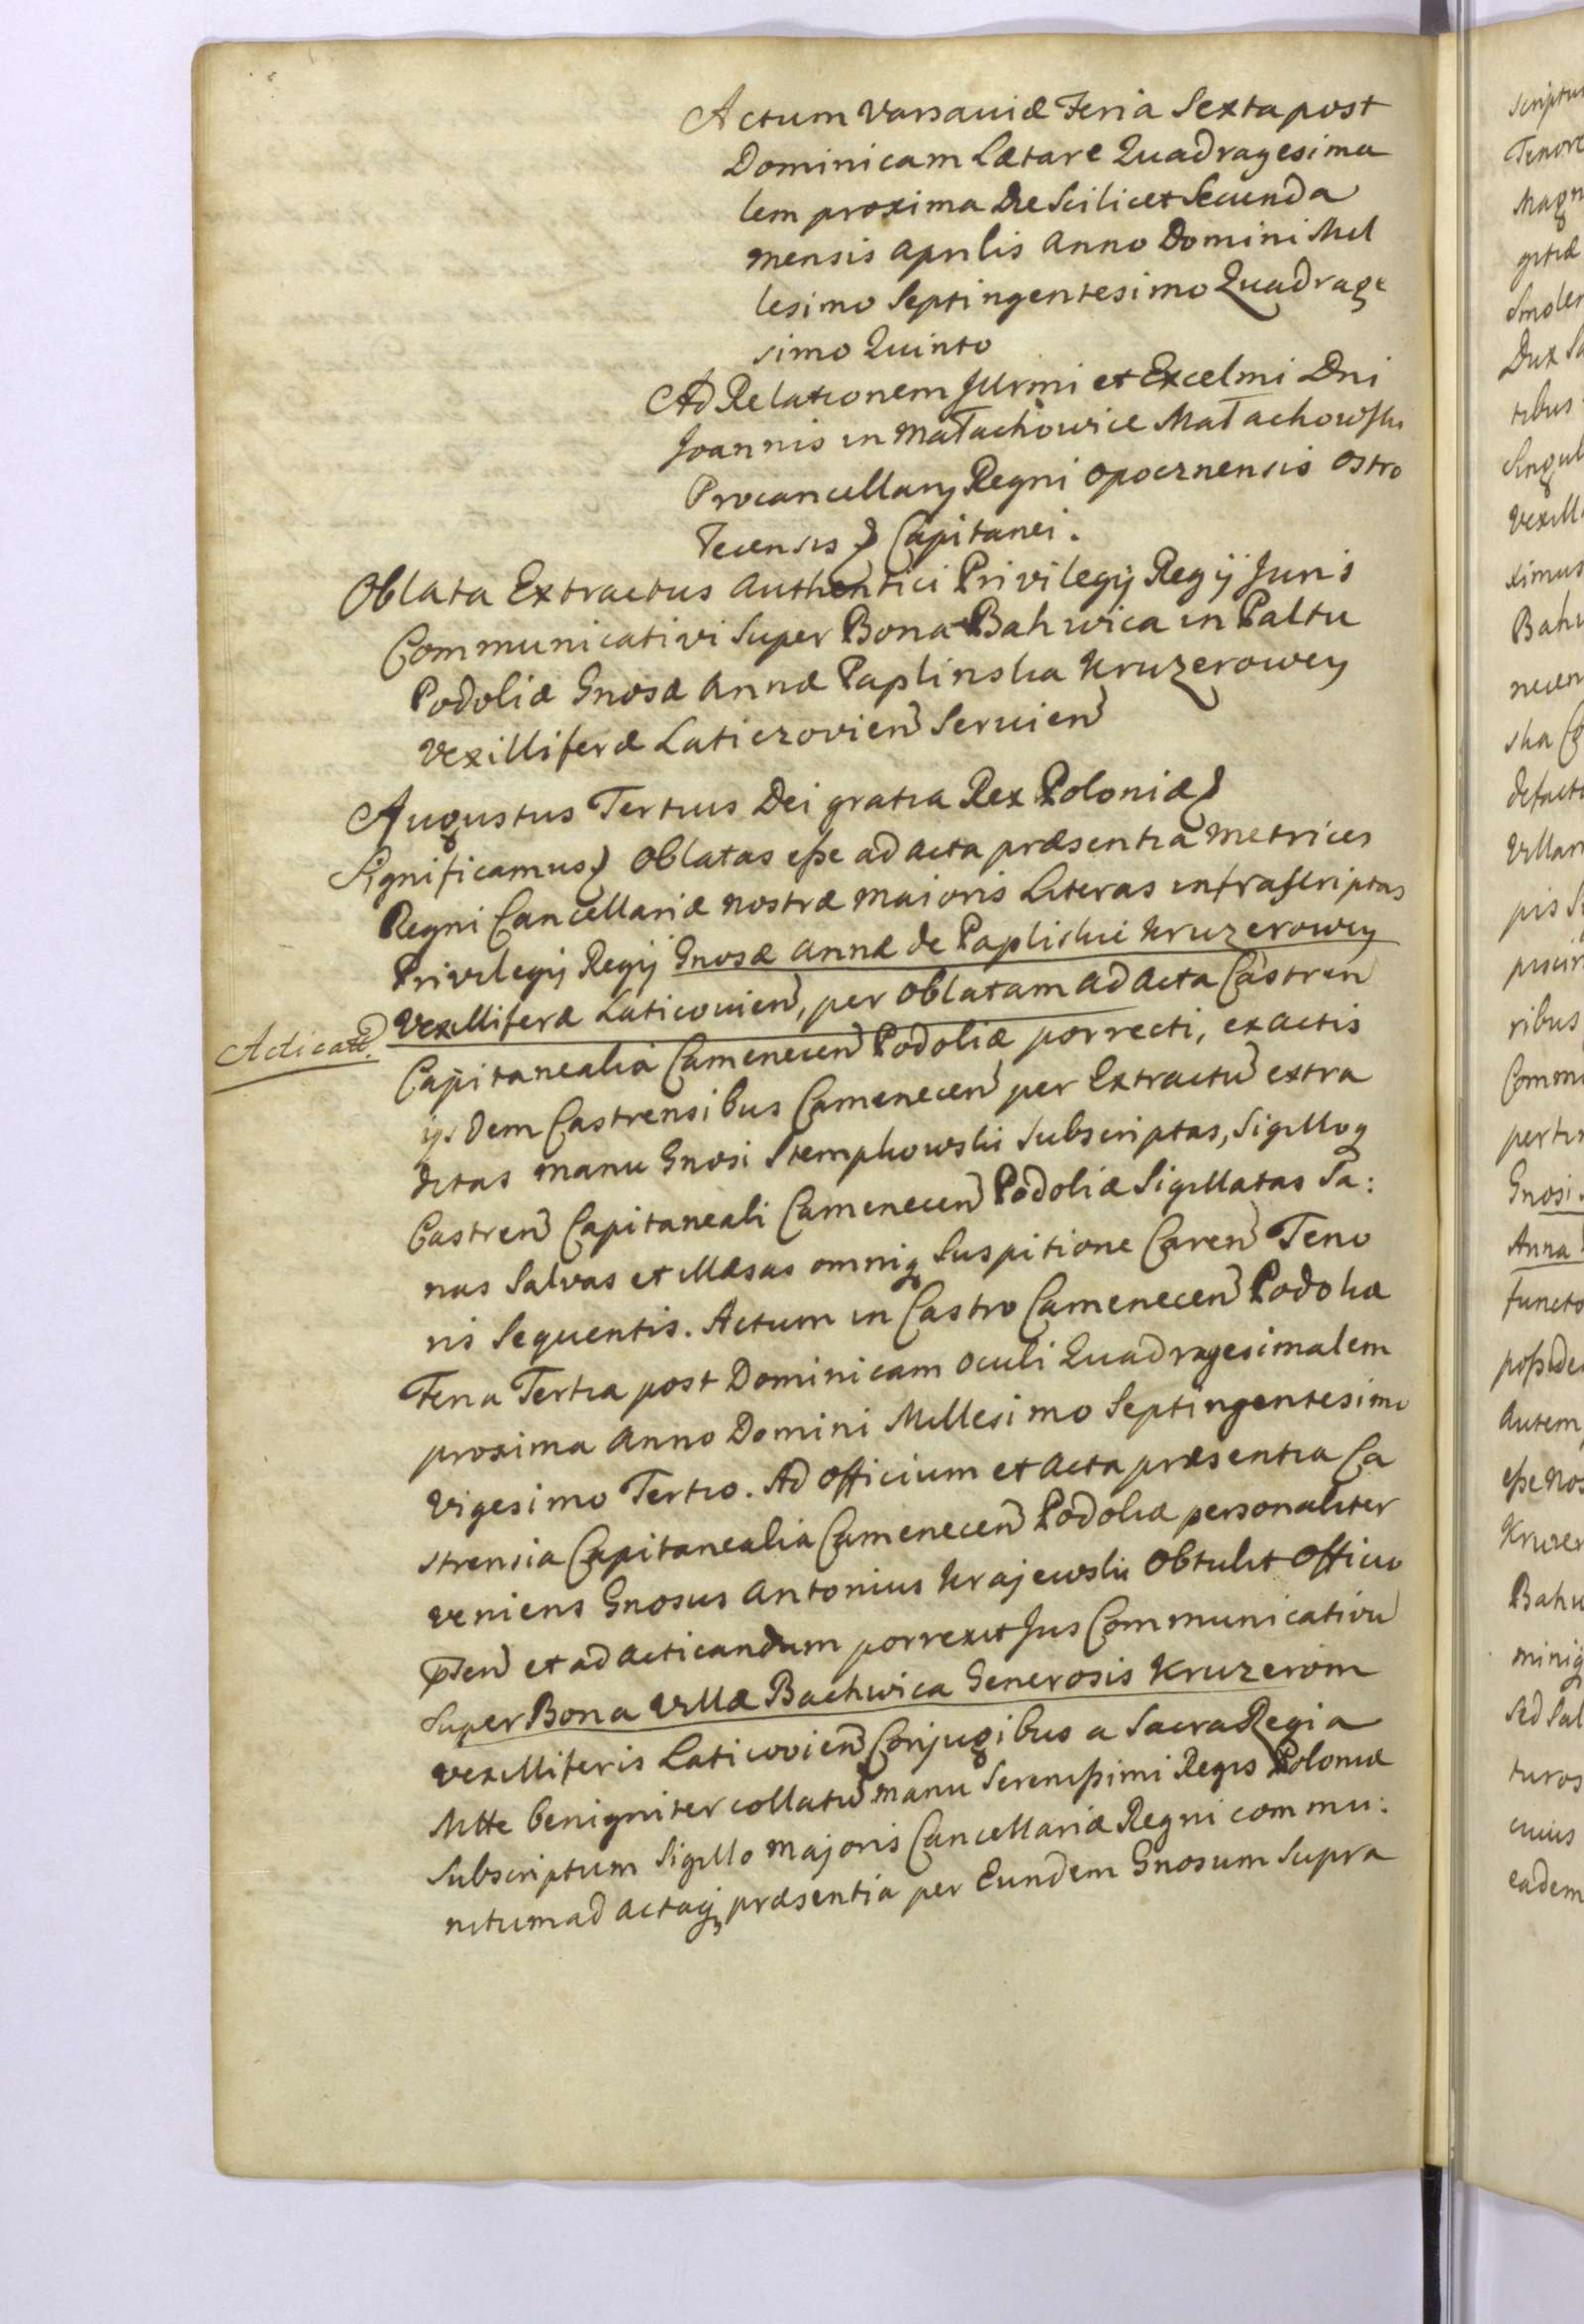 Actum Varsaviæ Feria Sexta post
Dominicam Lætare Quadragesima
lem proxima Die Scilicet Secunda
mensis Aprilis Anno Domini Mil
lesimo Septingentesimo Quadrage
simo Quinto
Ad Relationem Illrmi et Excelmi Dni
Joannis in Małachowice Małachowski
Procancellarij Regni Opocznensis Ostro
łecensis Capitanei.
Oblata Extractus Authentici Privilegij Regij Juris
Communicativi Super Bona Bahwica in Paltu
Podoliæ Gnosæ Annæ Paplinska Kruzerowey
Vexilliferæ Laticzovien Servien
Augustus Tertius Dei gratia Rex Poloniæ
Significamus Oblatas eſse ad acta præsentia Metrices
Regni Cancellariæ nostræ maioris Literas infraſcriptas
Privilegij Regij Gnosæ Annæ de Paplishii Kruzerowey
Vexilliferæ Laticovien, per Oblatam ad Acta Castren
Capitanealia Camenecen Podoliæ porrecti, ex actis
ijsdem Castrensibus Camenecen per Extractu extra
ditas manu Gnosi Stemphowski Subscriptas, Sigilloq
Castren Capitaneali Camenecen Podoliæ Sigillatas Sa:
nas Salvas et illæsas omniq Suspitione Caren Teno
ris Sequentis. Actum in Castro Camenecen Podoliæ
Feria Tertia post Dominicam Oculi Quadragesimalem
proxima Anno Domini Millesimo Septingentesimo
Vigesimo Tertio. Ad Officium et Acta præsentia Ca
strensia Capitanealia Camenecen Podoliæ personaliter
veniens Gnosus Antonius Krajewski Obtulit Officio
pſen et ad acticandum porrexit Jus Communicativu
Super Bona Villæ Bachwica Generosis Kruzerom
Vexilliferis Laticovien Conjugibus a Sacra Regia
Mtte benigniter collatu manu Serenissimi Regis Poloniæ
Subscriptum Sigillo Majoris Cancellariæ Regni commu:
nitum ad actaq præsentia per Eundem Gnosum Supra
Acticatt.